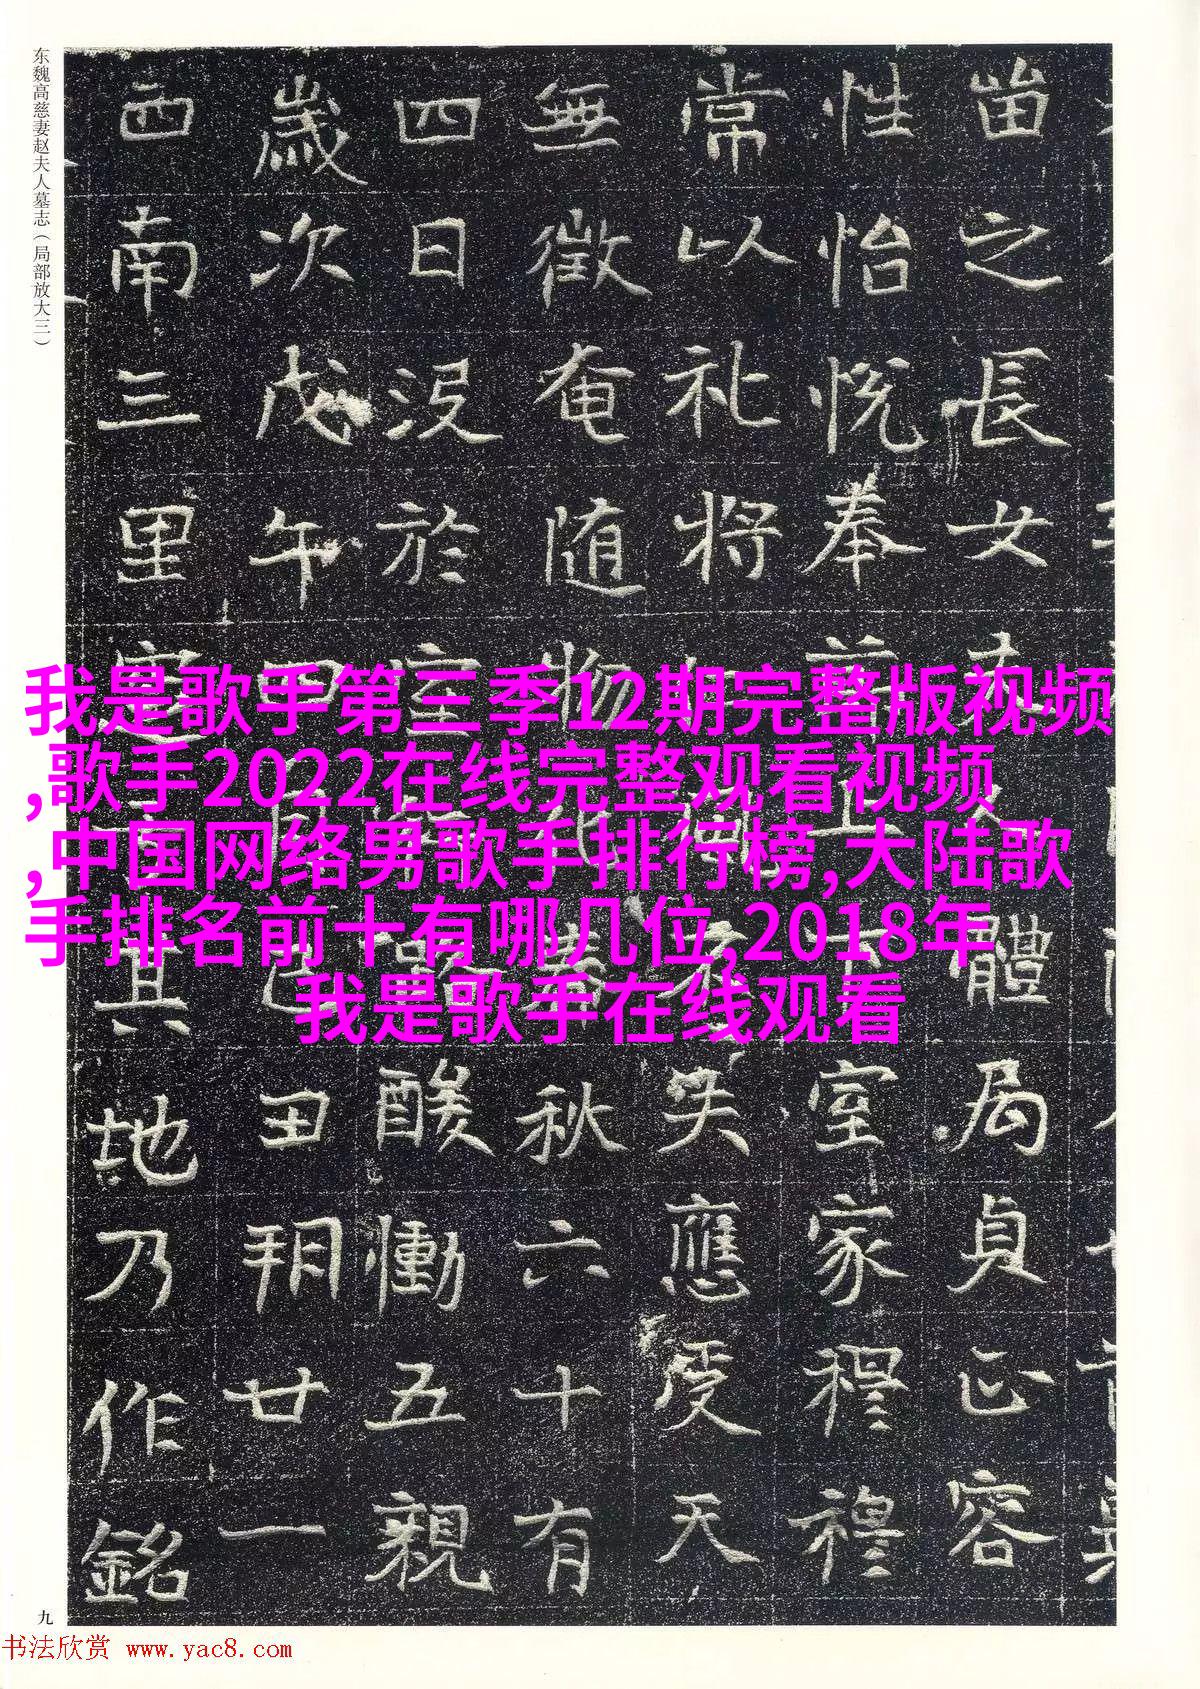 东魏高慈妻赵夫人墓志（局部放大三）
之長女體局貞正容
性怡悦奉室家穆穆
常以礼将失應受天
無徵奄随物化春秋六十有
四日没於室行路酸慟五親
歲次戊午四月己丑朔廿一
西南三里其地乃作銘
我是歌手第三季12期完整版视频
,歌手2022在线完整观看视频
,中国网络男歌手排行榜,大陆歌
手排名前十有哪几位,2018年
我是歌手在线观看
九
书法欣赏 www.yac8.com